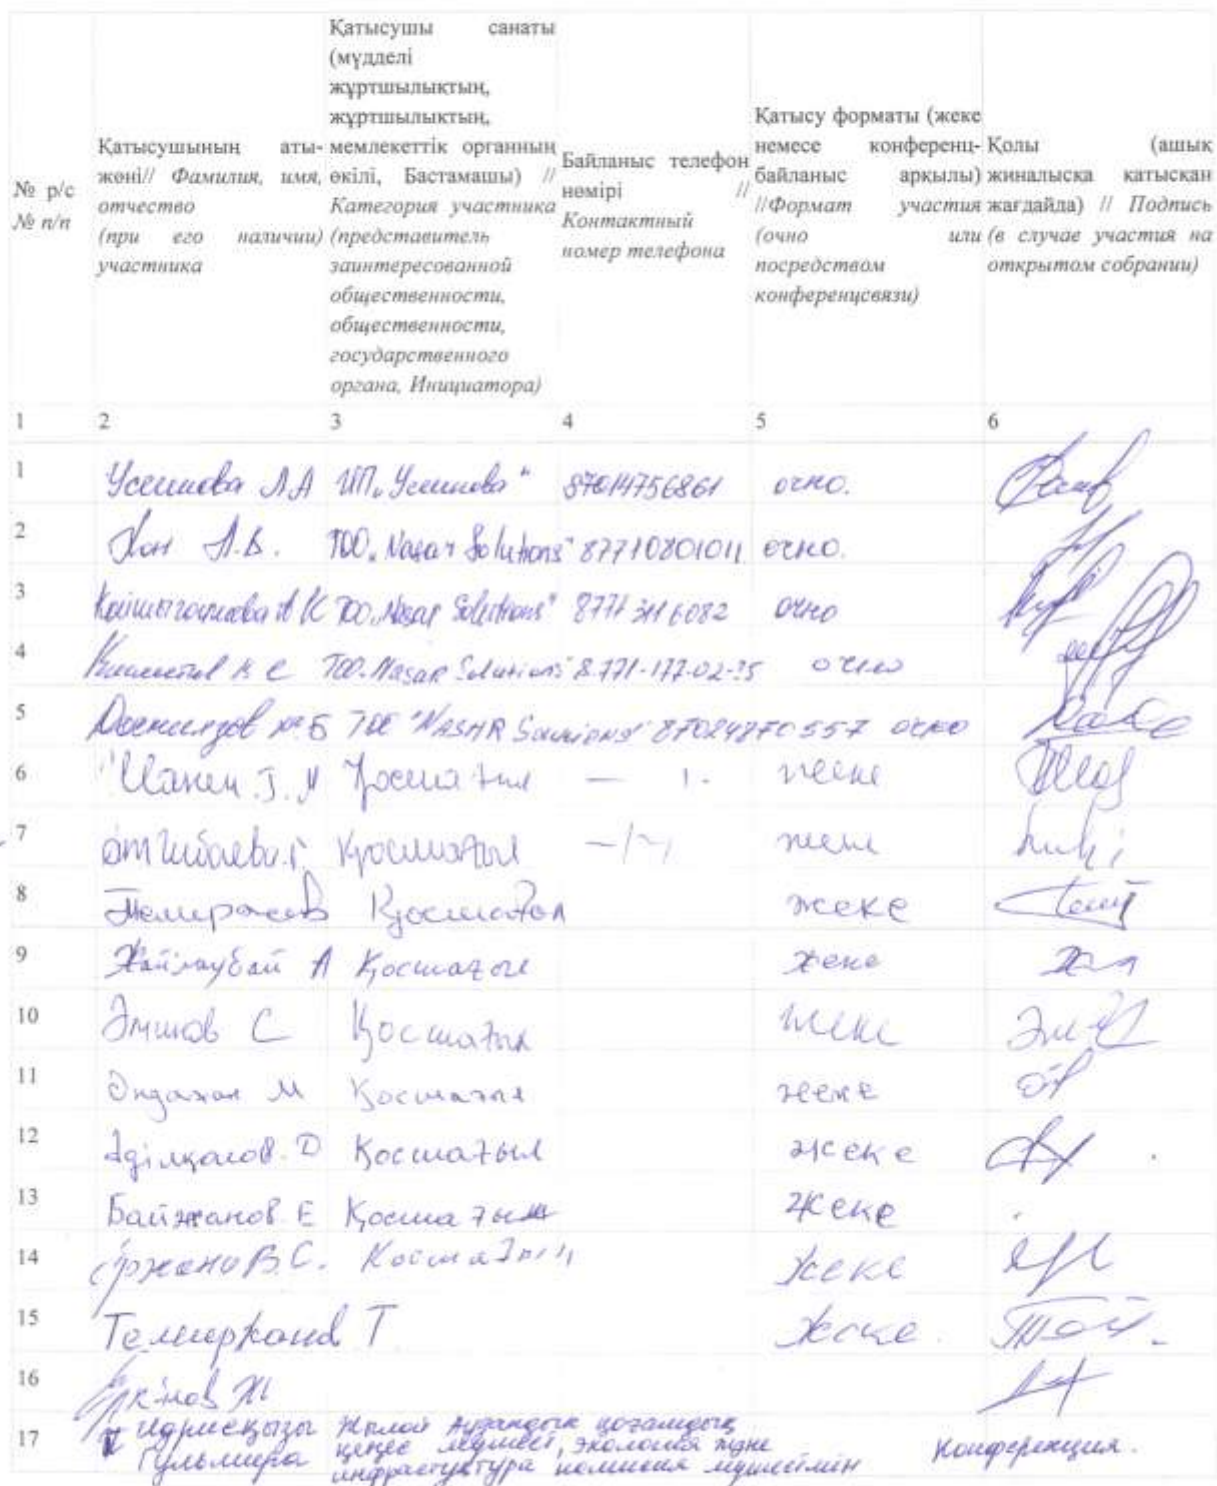 № р/с
№ п/п
Қатысушының аты-
жөні// Фамилия, имя,
отчество
(при его наличии)
участника
Қатысушы санаты
(мүдделі
жұртшылықтың,
жұртшылықтың,
мемлекеттік органның
өкілі, Бастамашы) //
Категория участника
(представитель
заинтересованной
общественности,
общественности,
государственного
органа, Инициатора)
Байланыс телефон
нөмірі //
Контактный
номер телефона
Қатысу форматы (жеке
немесе конференц-
байланыс арқылы)
//Формат участия
(очно или
посредством
конференцсвязи)
Қолы (ашық
жиналысқа қатысқан
жағдайда) // Подпись
(в случае участия на
открытом собрании)
1 2 3 4 5 6
1 Усеинова Л.А ИП "Усеинова" 87014756861 очно.
2 Хон А.В. ТОО "Nasar Solutions" 87710801011 очно.
3 ТОО "Nasar Solutions" очно
4 ТОО "Nasar Solutions" 8-771-177-02-35 очно
5 ТОО "NASAR Solutions" 87024870557 очно
6 Қосшағыл жеке
7 Қосшағыл жеке
8 Қосшағыл жеке
9 Жайлаубай А Қосшағыл жеке
10 Қосшағыл жеке
11 Қосшағыл жеке
12 Әділқанов. D Қосшағыл жеке
13 Байжанов. Е Қосшағыл жеке
14 Қосшағыл жеке
15 Темирханов Т жеке.
16 Еркінов Ж
17 Идрисқызы Жылой аудандық қоғамдық
Гульмира кеңес мүшесі, экология және Конференция.
инфраструктура комиссия мүшесімін